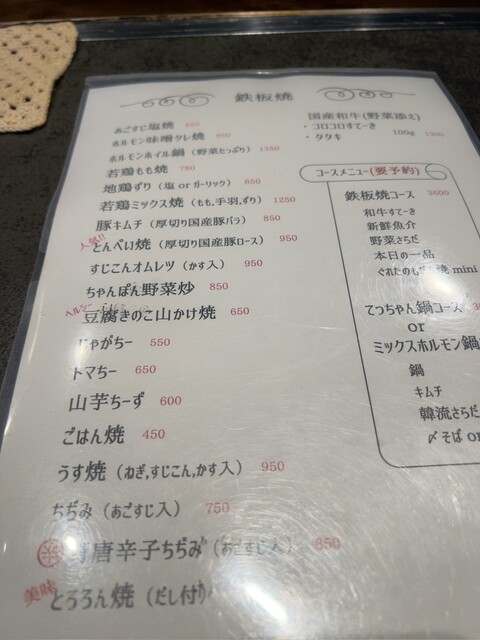 鉄板焼
あごすじ塩焼 650
ホルモン味噌タレ焼 690
ホルモンホイル鍋（野菜たっぷり） 1250
若鶏もも焼 780
地鶏ずり（塩 or ガーリック） 650
若鶏ミックス焼（もも,手羽,ずり） 1250
豚キムチ（厚切り国産豚バラ） 850
人気!!
とんぺい焼（厚切り国産豚ロース） 950
すじこんオムレツ（かす入） 950
ちゃんぽん野菜炒 850
ヘルシー
豆腐きのこ山かけ焼 650
じゃがちー 550
トマちー 650
山芋ちーず 600
ごはん焼 450
うす焼（ねぎ,すじこん,かす入） 950
ちぢみ（あごすじ入） 750
辛 青唐辛子ちぢみ（あごすじ入） 850
美味
とろろん焼（だし付）
国産和牛（野菜添え）
・コロコロすてーき
・タタキ 100g
コースメニュー（要予約）
鉄板焼コース 3600
和牛すてーき
新鮮魚介
野菜さらだ
本日の一品
焼 mini
てつちゃん鍋コース
or
ミックスホルモン鍋
鍋
キムチ
韓流さらだ
〆そば or